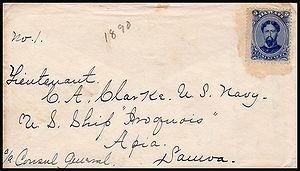 No. 1.
1890
Lieutenant
C. A. Clarke. U. S. Navy.
U. S. Ship "Iroquois"
Apia.
c/o Consul General. Samoa.